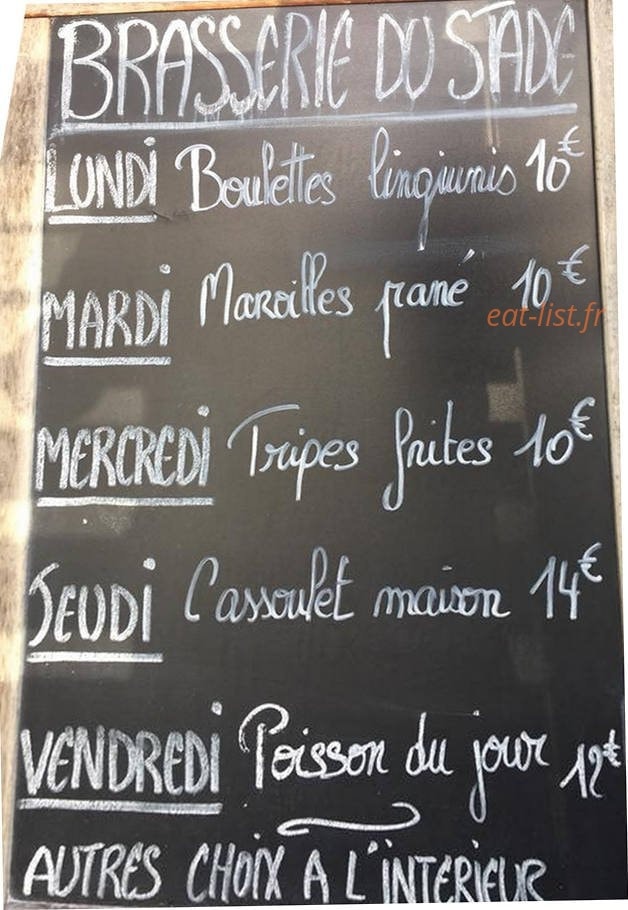 BRASSERIE DU STADE
LUNDI Boulettes lingiunis 10€
MARDI Maroilles pané 10€
eat-list.fr
MERCREDI Tripes frites 10€
JEUDI Cassoulet maison 14€
VENDREDI Poisson du jour 12€
AUTRES CHOIX A L'INTERIEUR